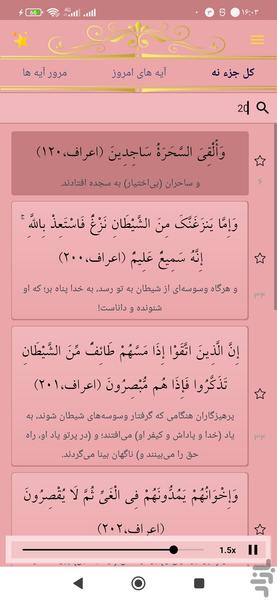 ۱۶:۰۳
66
کل جزء نه
آیه های امروز
مرور آیه ها
20
وَأُلْقِيَ السَّحَرَةُ سَاجِدِينَ (اعراف،۱۲۰)
و ساحران (بی‌اختیار) به سجده افتادند.
۶
وَإِمَّا يَنزَغَنَّكَ مِنَ الشَّيْطَانِ نَزْغٌ فَاسْتَعِذْ بِاللَّهِ ۚ
إِنَّهُ سَمِيعٌ عَلِيمٌ (اعراف،۲۰۰)
و هرگاه وسوسه‌ای از شیطان به تو رسد، به خدا پناه بر؛ که او
شنونده و داناست!
إِنَّ الَّذِينَ اتَّقَوْا إِذَا مَسَّهُمْ طَائِفٌ مِّنَ الشَّيْطَانِ
تَذَكَّرُوا فَإِذَا هُم مُّبْصِرُونَ (اعراف،۲۰۱)
پرهیزگاران هنگامی که گرفتار وسوسه‌های شیطان شوند، به
یاد (خدا و پاداش و کیفر او) می‌افتند؛ و (در پرتو یاد او، راه
حق را می‌بینند و) ناگهان بینا می‌گردند.
وَإِخْوَانُهُمْ يَمُدُّونَهُمْ فِي الْغَيِّ ثُمَّ لَا يُقْصِرُونَ
(اعراف،۲۰۲)
1.5x
بازار